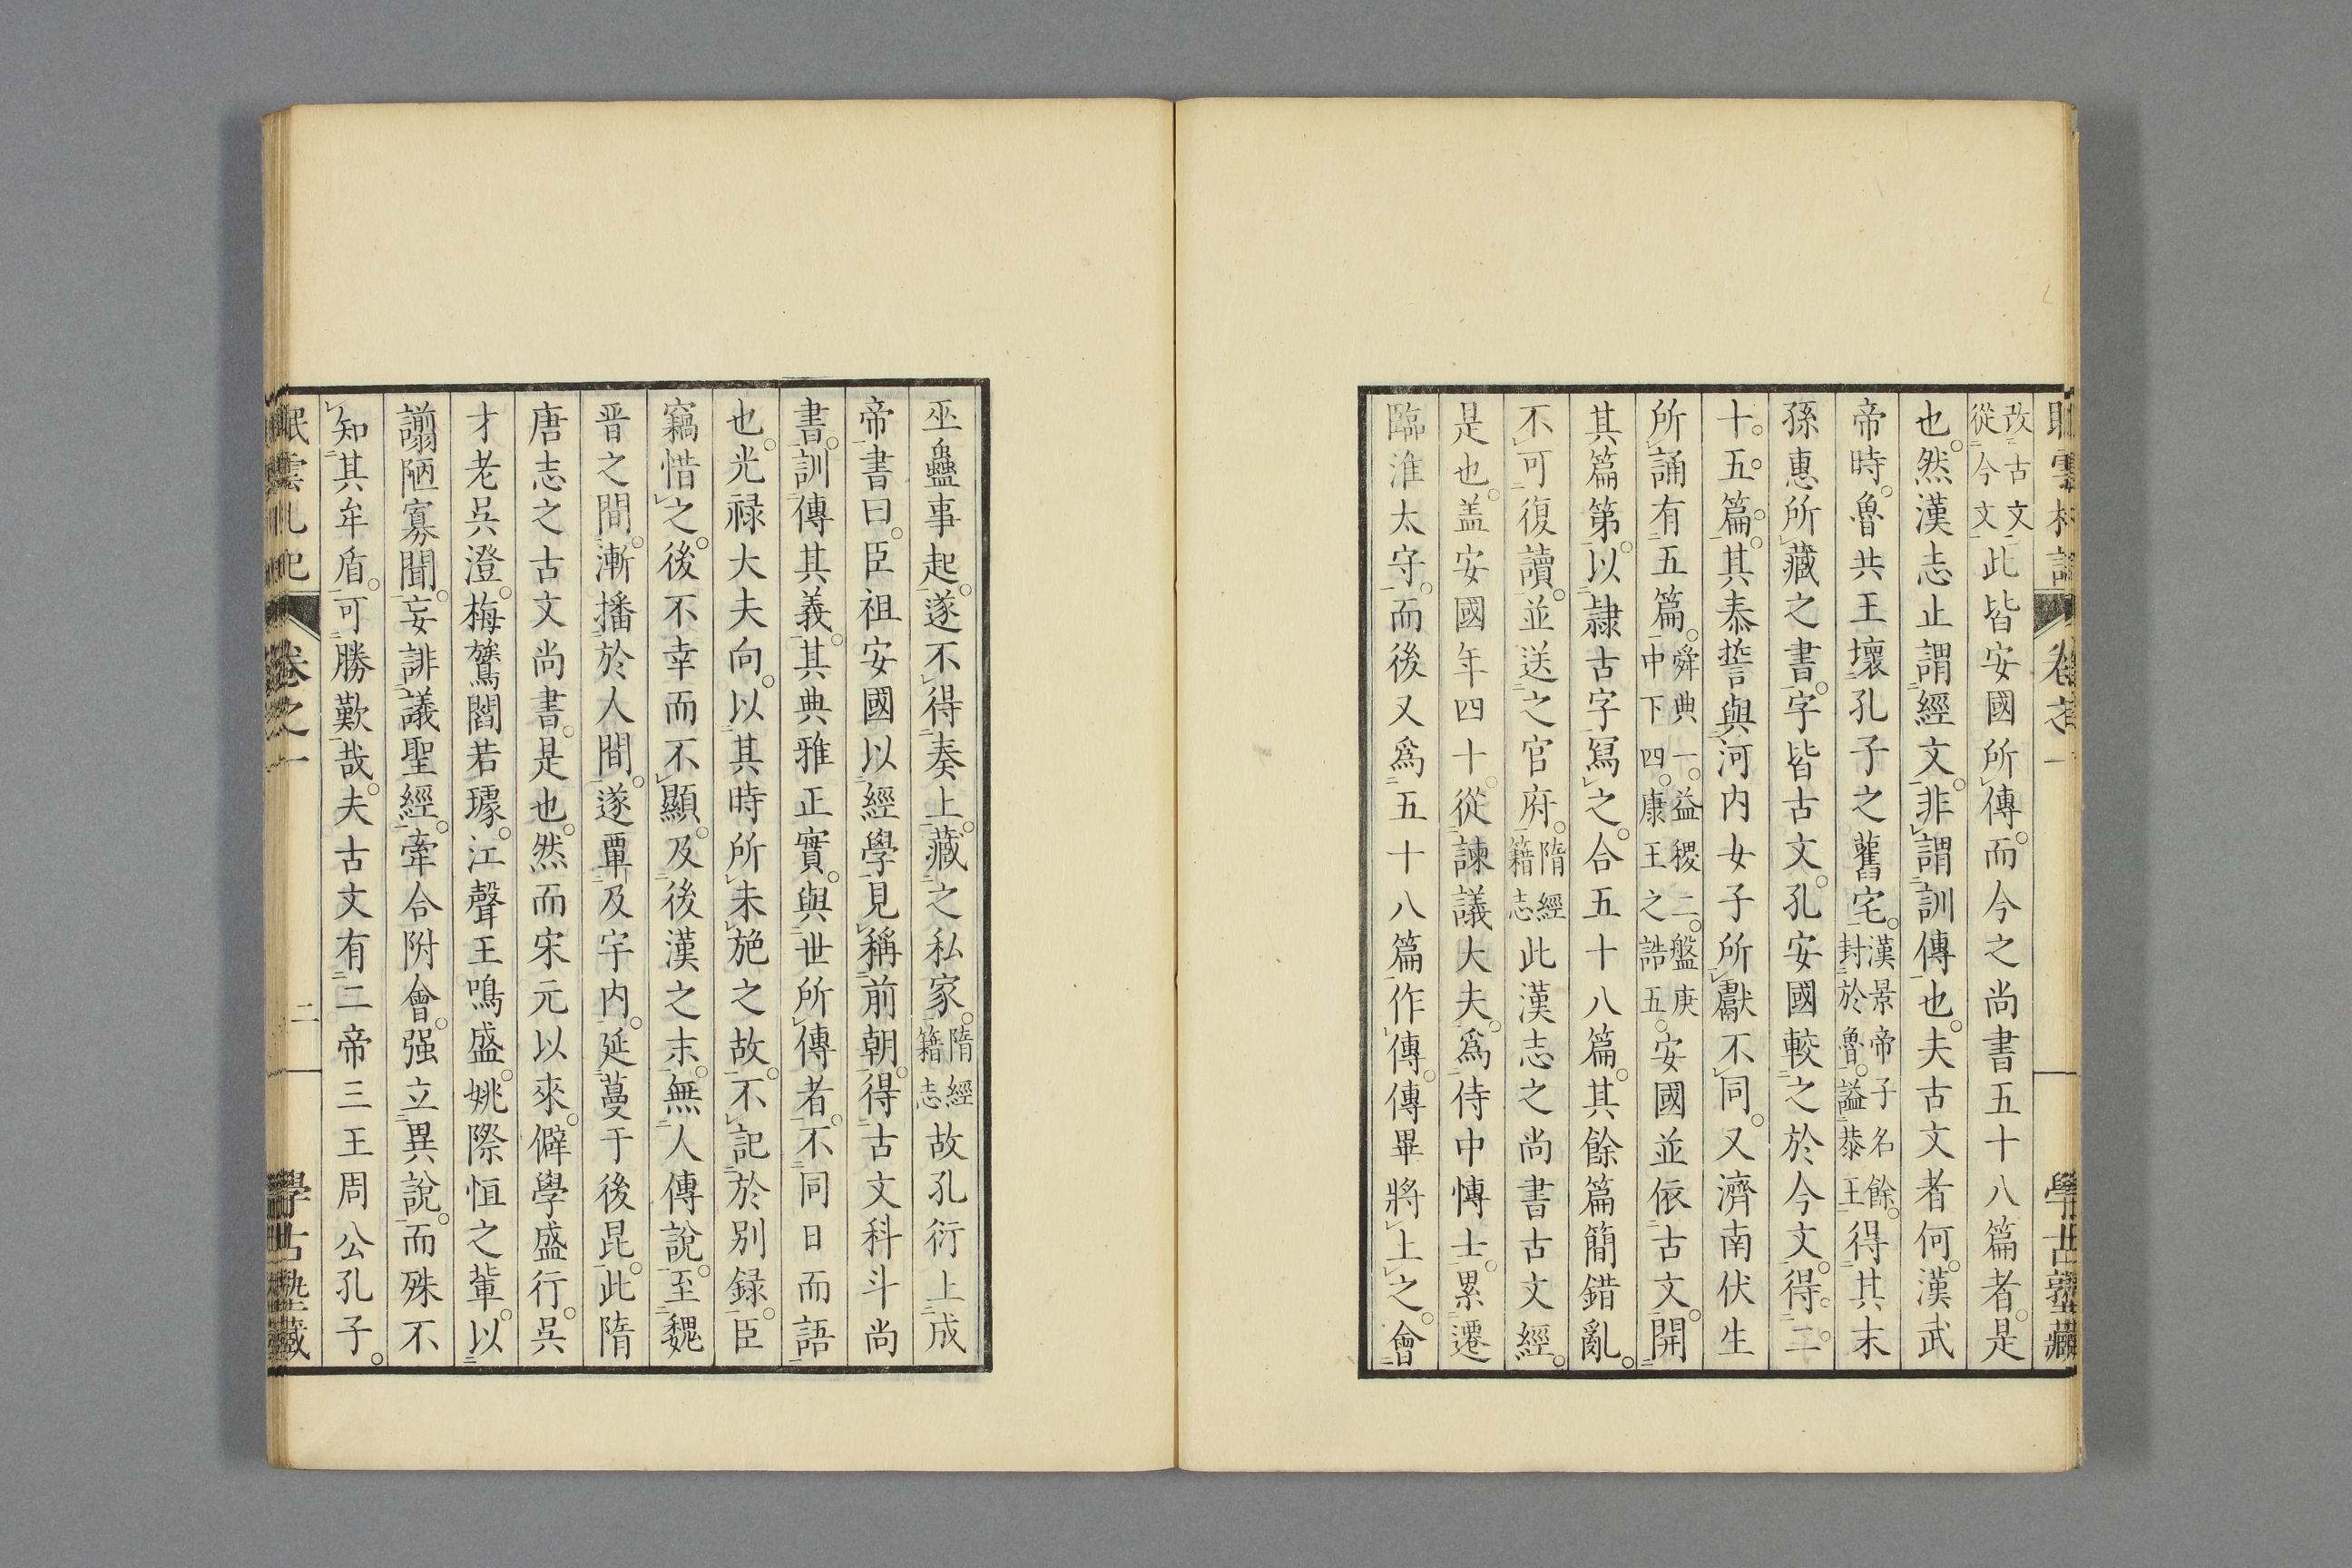 改古文從今文此皆安國所傳。而今之尚書五十八篇者。是
也。然漢志止謂經文。非謂訓傳也。夫古文者何。漢武
帝時。魯共王壞孔子之舊宅。漢景帝子名餘。封於魯。謚恭王得其末
孫惠所藏之書。字皆古文。孔安國較之於今文。得。二。
十。五。篇。其泰誓與河内女子所獻不同。又濟南伏生
所誦有五篇。舜典一。益稷二。盤庚中下四。康王之誥五。安國並依古文。開
其篇第。以隷古字寫之。合五十八篇。其餘篇簡錯亂。
不可復讀。並送之官府。隋經籍志此漢志之尚書古文經。
是也。盖安國年四十。從諫議大夫。爲侍中愽士。累遷
臨淮太守。而後又爲五十八篇作傳。傳畢將上之。會
巫蠱事起。遂不得奏上。藏之私家。隋經籍志故孔衍上成
帝書曰。臣祖安國以經學見稱前朝。得古文科斗尚
書。訓傳其義。其典雅正實。與世所傳者。不同日而語
也。光禄大夫向。以其時所未施之故。不記於別録。臣
竊惜之。後不幸而不顯。及後漢之末。無人傳說。至魏
晋之間。漸播於人間。遂覃及宇内。延蔓于後昆。此隋
唐志之古文尚書。是也。然而宋元以來。僻學盛行。吳
才老吳澄。梅鷟閻若璩。江聲王鳴盛。姚際恒之輩。以
謭陋寡聞。妄誹議聖經。牽合附會。强立異說。而殊不
知其牟盾。可勝歎哉。夫古文有二帝三王周公孔子。
卷之一
二
學古塾藏